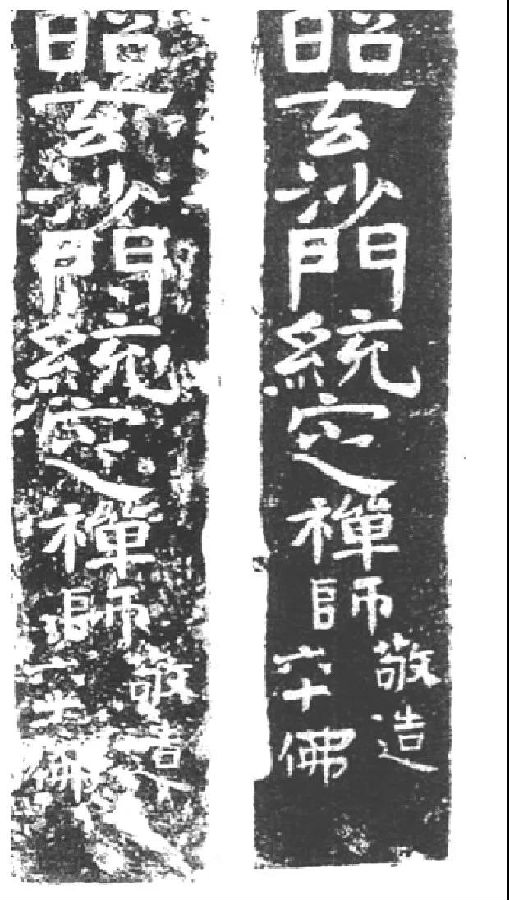 昭玄沙門統定禪師
敬造
六十佛
昭玄沙門統定禪師
敬造
六十佛